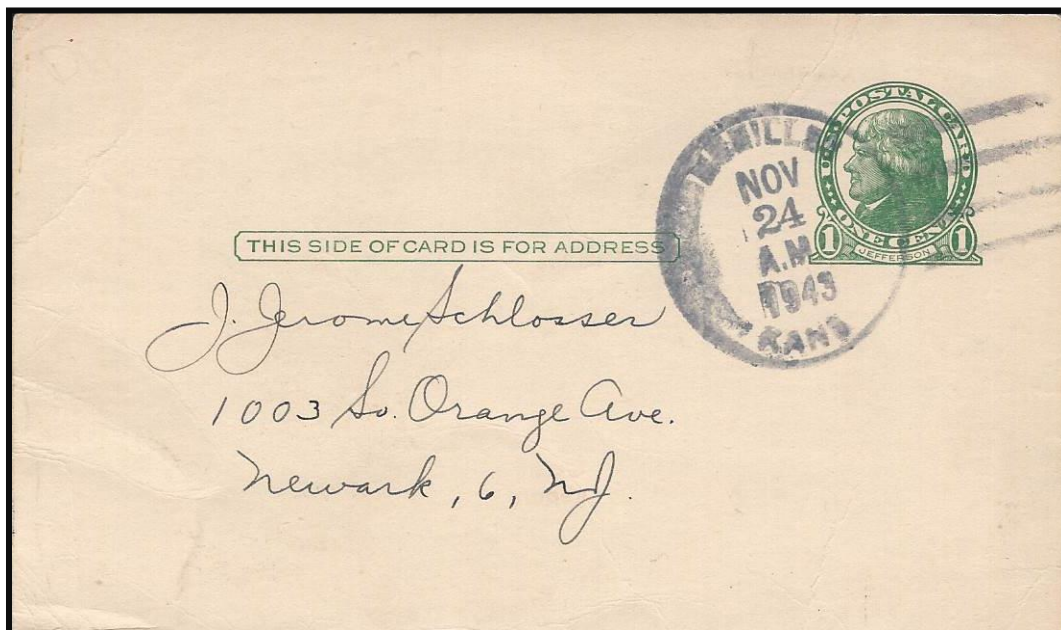 U.S. POSTAL CARD
ONE CENT
1 1
JEFFERSON
NOV
24
A.M
1943
KANS
THIS SIDE OF CARD IS FOR ADDRESS
J. Jerome Schlosser
1003 So. Orange Ave.
Newark, 6, NJ.